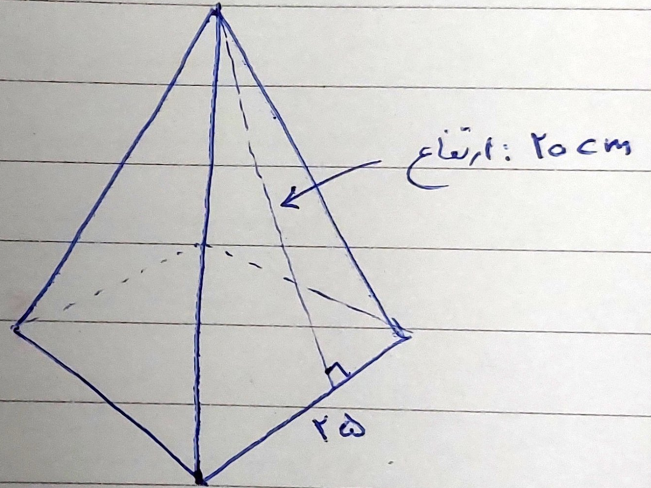 ارتفاع: ۲۰cm
۲۵